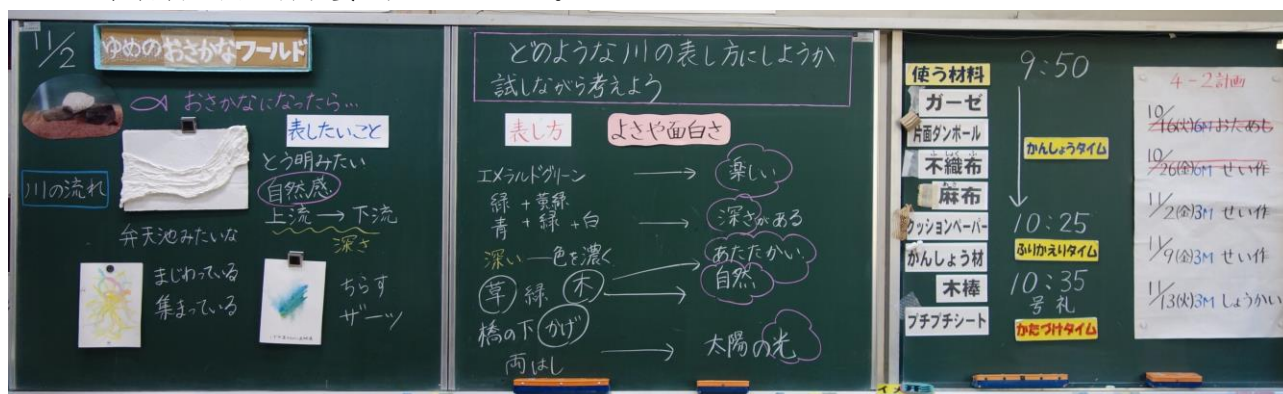 11/2
ゆめのおさかなワールド
おさかなになったら…
表したいこと
とう明みたい
自然感
川の流れ
上流→下流
深さ
弁天池みたいな
まじわっている
集まっている
ちらす
ザーッ
どのような川の表し方にしようか
試しながら考えよう
表し方
よさや面白さ
エメラルドグリーン → 楽しい
緑+黄緑
青+緑+白 → 深さがある
深い―色を濃く
あたたかい
草 緑 木 → 自然
橋の下 かげ
両はし → 太陽の光
使う材料
ガーゼ
片面ダンボール
不織布
麻布
クッションペーパー
かんしょう材
木棒
プチプチシート
9:50
かんしょうタイム
10:25
ふりかえりタイム
10:35
号礼
かたづけタイム
4-2計画
10/16(火)6M おためし
10/26(金)3M せい作
11/2(金)3M せい作
11/9(金)3M せい作
11/13(火)3M しょうかい